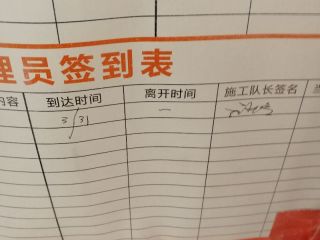 理员签到表
内容 到达时间 离开时间 施工队长签名
3/31 —